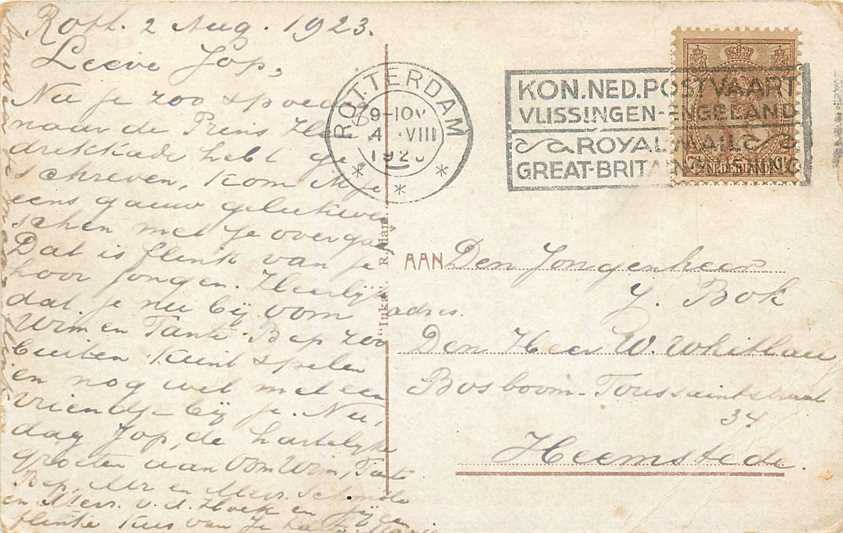 Rott. 2 Aug. 1923.
Lieve Jop,
Nu je zoo spoedig
naar de Prins Hen
drikkade hebt ge
schreven, kom ik je
eens gauw gelukwen
schen met je overgang
Dat is flink van je
hoor jongen. Heerlijk
dat je nu bij oom
Wim en Tante Bep zoo
buiten kunt spelen
en nog wel met een
vriendje bij je. Nu,
dag Jop, de hartelijke
groeten aan Oom Wim, Tante
Bep, Mr en Mevr.
en Mevr. v. d. Hoek en jij een
flinke kus van je
ROTTERDAM
9-10V
4 VIII
192
KON. NED. POSTVAART
VLISSINGEN-ENGELAND
ROYAL MAIL
GREAT-BRITAIN
NEDERLAND
"Inka" R.dam.
AAN Den Jongenheer
J. Bok
adres.
Den Heer W. Whitlau
Bosboom-Toussaintstraat
34
Heemstede.